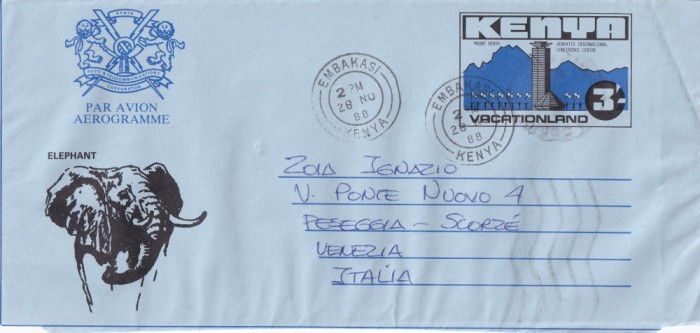 KENYA
POSTS & TELECOMMUNICATIONS
CORPORATION
PAR AVION
AEROGRAMME
ELEPHANT
EMBAKASI
2 PM
28 NO
88
KENYA
KENYA
MOUNT KENYA
KENYATTA INTERNATIONAL
CONFERENCE CENTRE
3/-
VACATIONLAND
EMBAKASI
2
28
88
KENYA
ZOIA IGNAZIO
V. PONTE NUOVO 4
PESEGGIA - SCORZÉ
VENEZIA
ITALIA